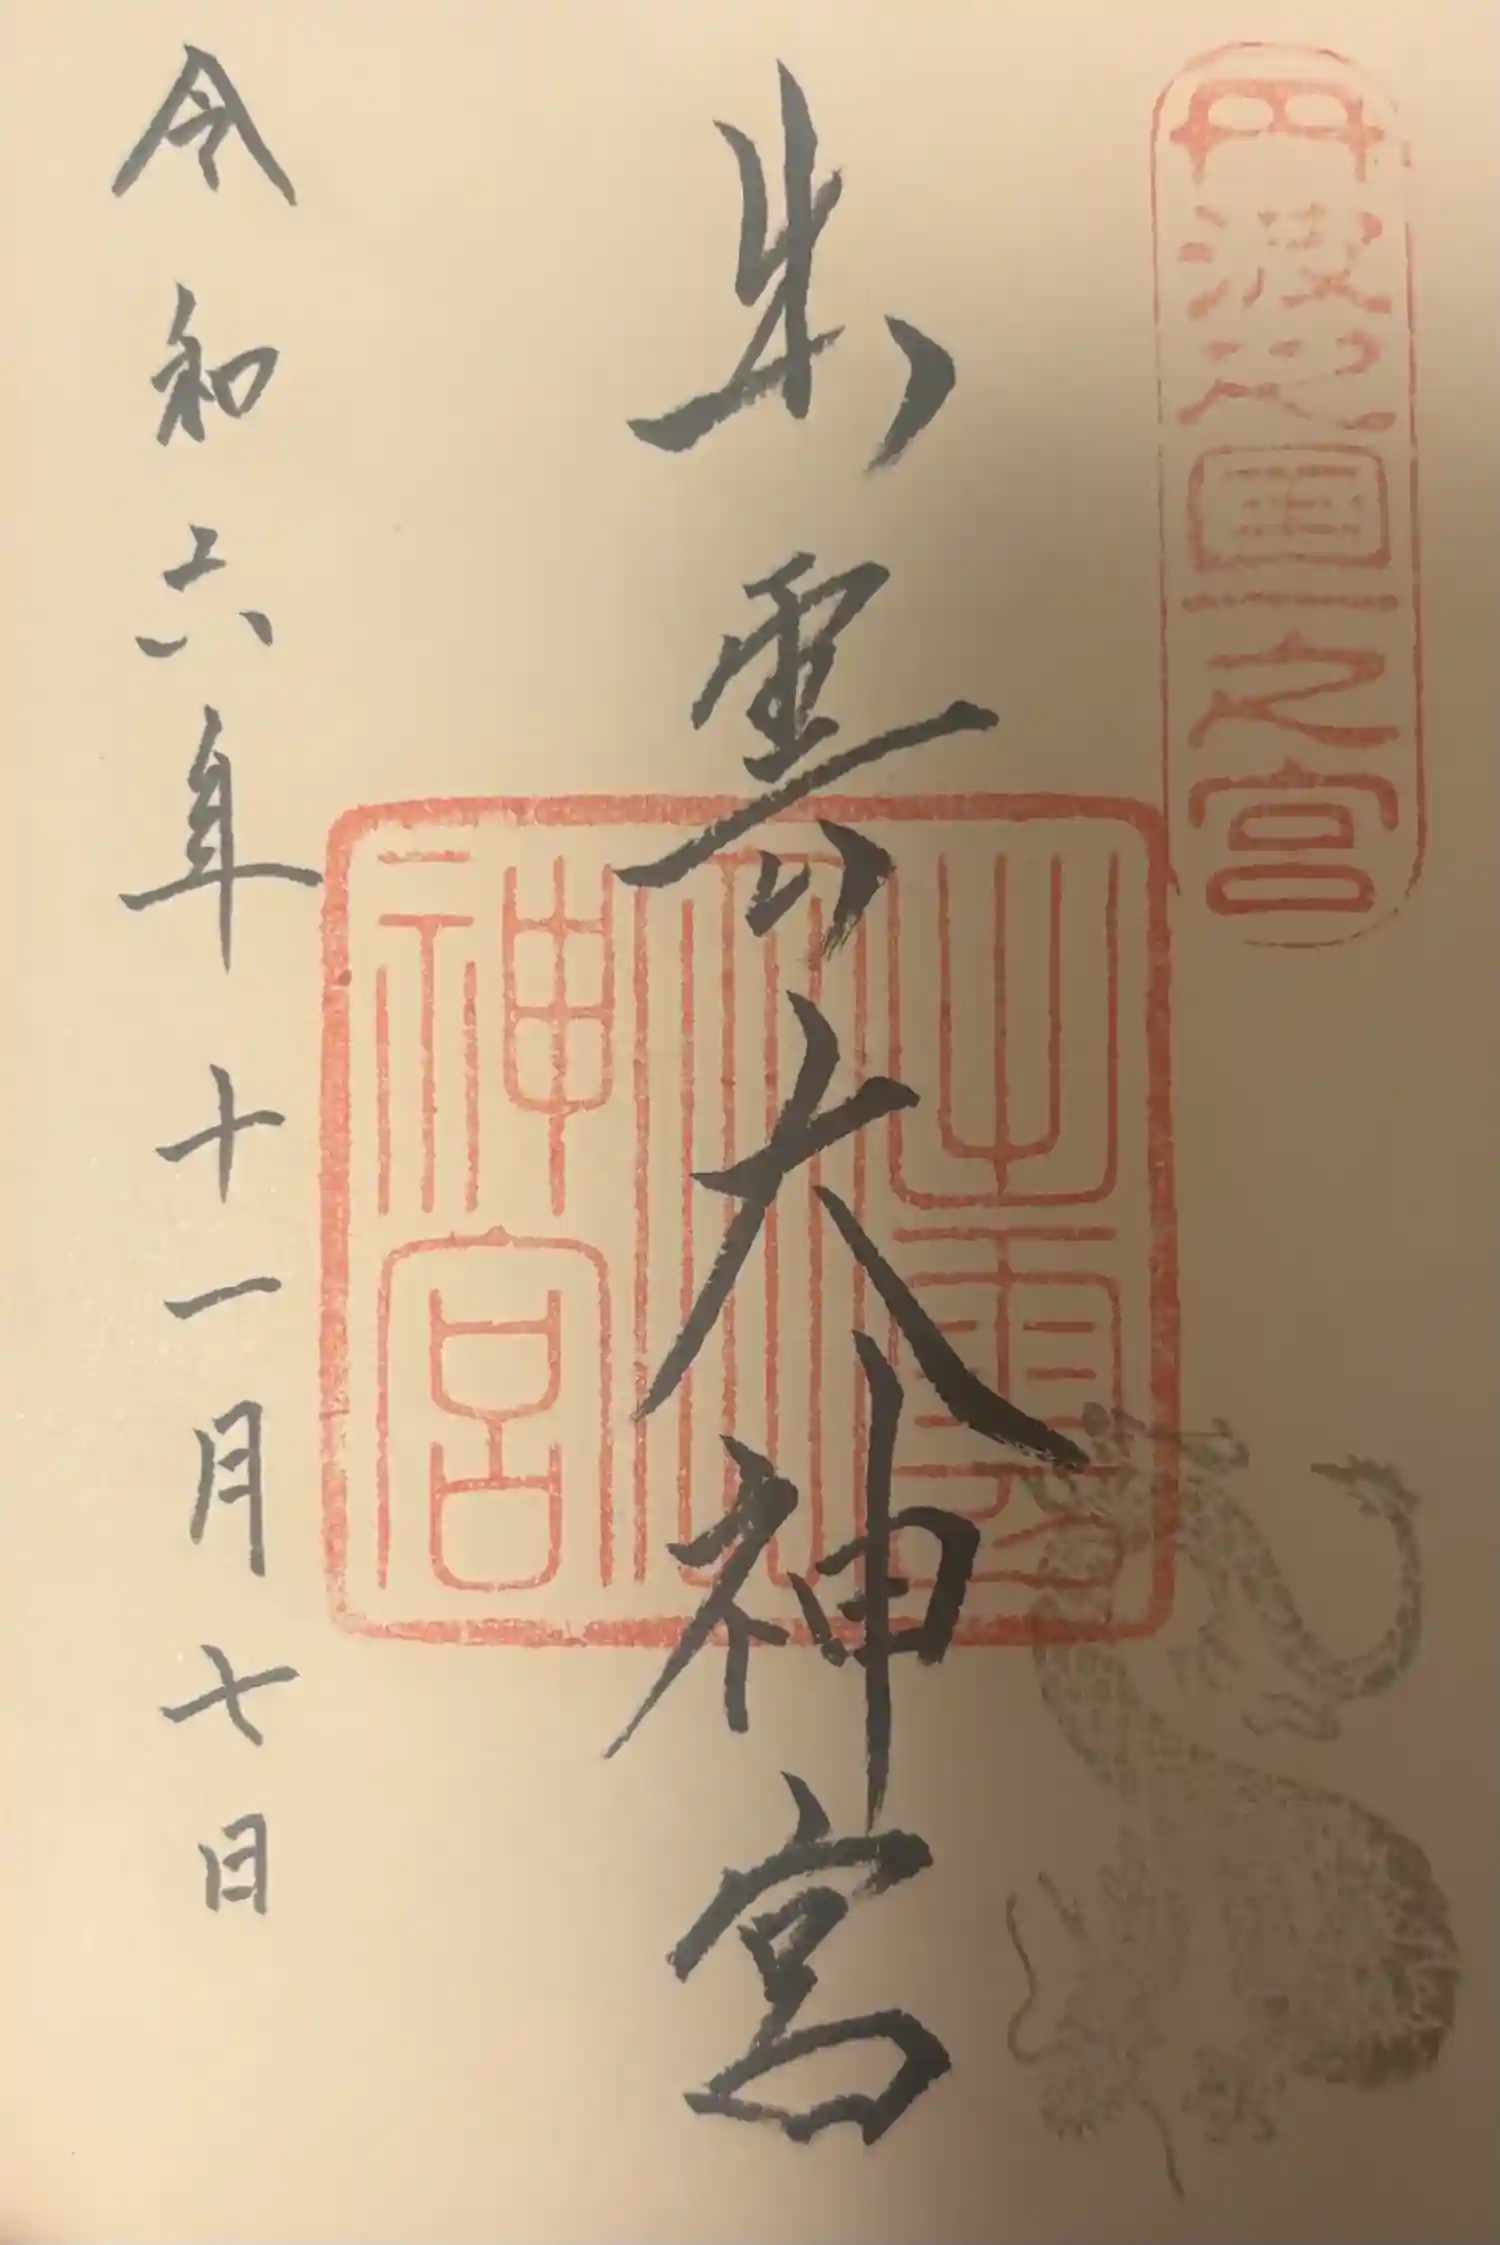 丹波之国一之宮
出雲大神宮
出雲大神宮
令和六年十一月七日